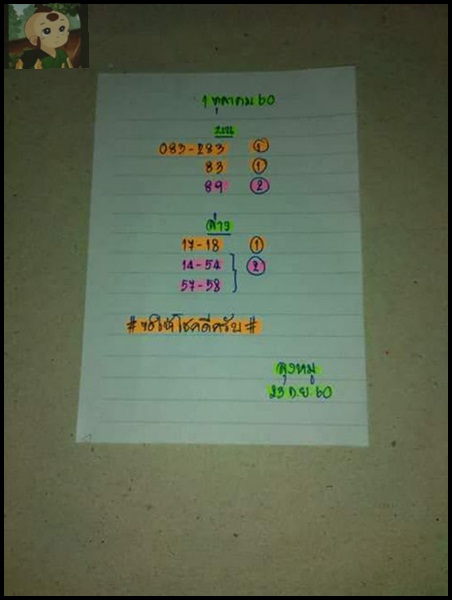 1 ตุลาคม 60
บน
083-283 1
83 1
89 2
ล่าง
17-18 1
14-54 2
57-58
#ขอให้โชคดีครับ#
ลุงหมู
23 ก.ย. 60